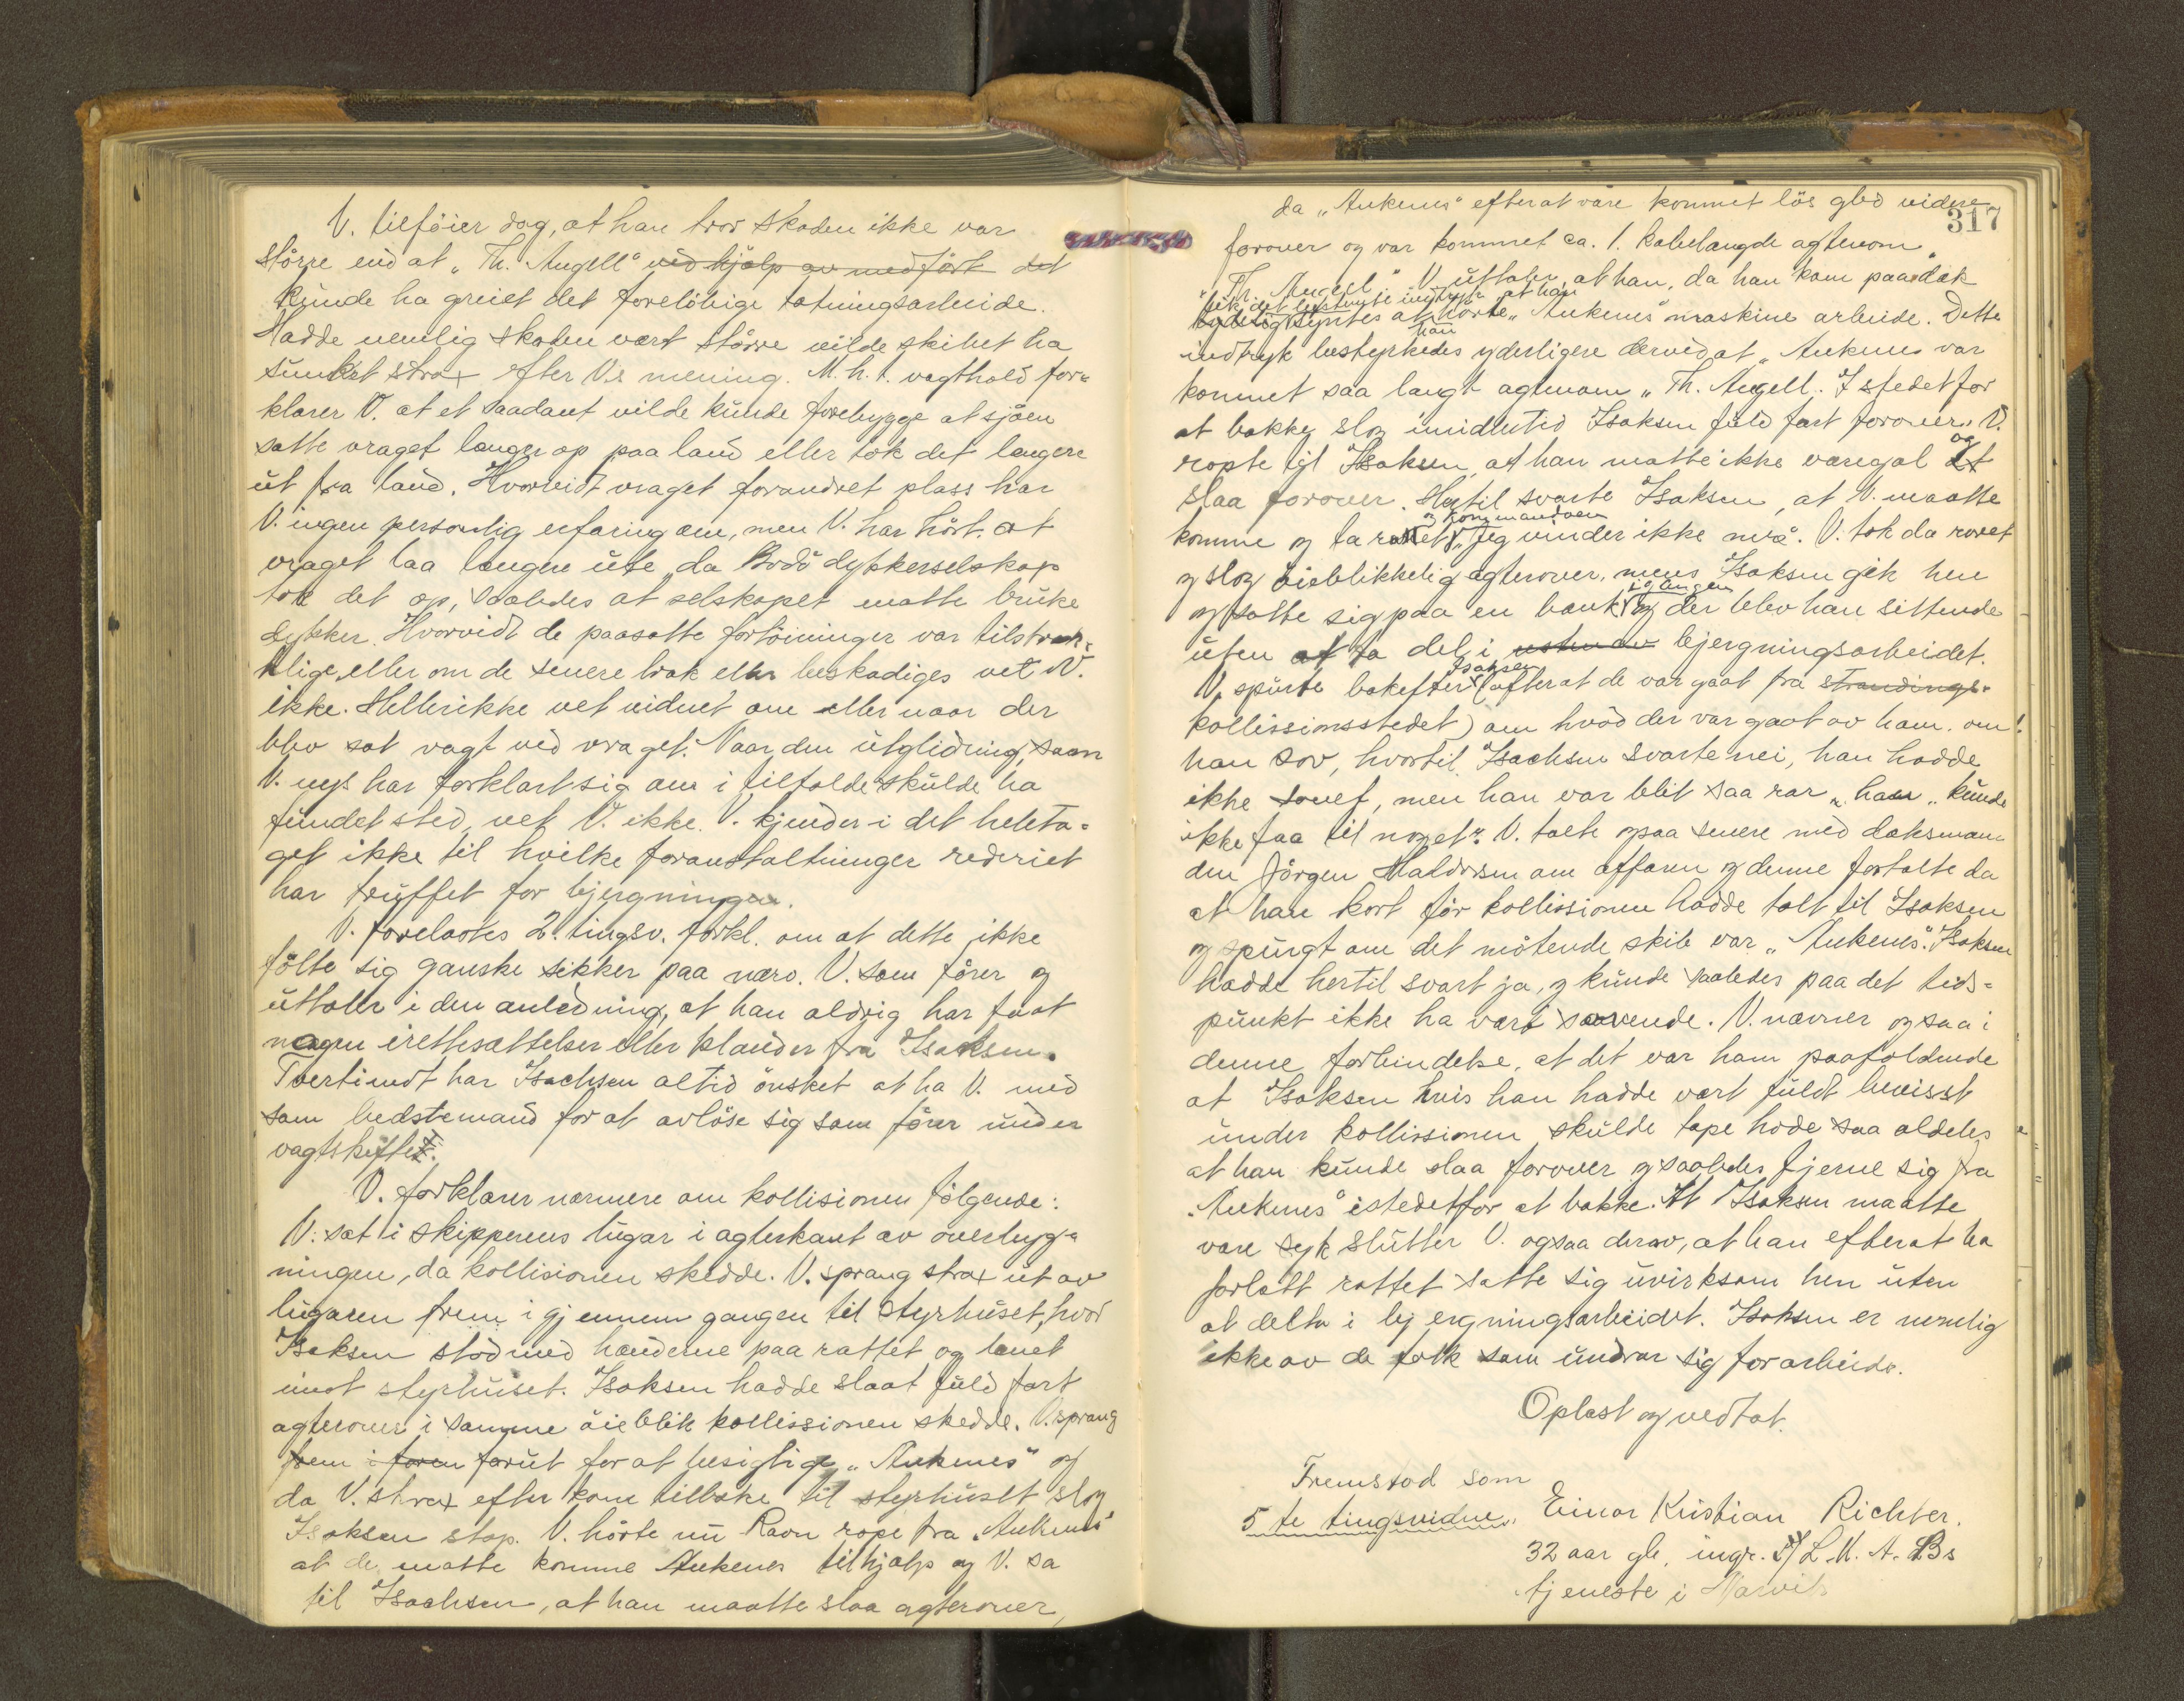 V. tilföier dog, at han tror skaden ikke var
större end at „Th. Angell" ved hjælp av medfört det
kunde ha greiet det forelöbige tætningsarbeide.
Hadde nemlig skaden vært större vilde skibet ha
sunket strax efter V.s mening. M.h.t. vagthold for-
klarer V. at et saadant vilde kunde forebygge at sjöen
satte vraget længer op paa land eller tok det længere
ut fra land. Hvorvidt vraget forandret plass har
V. ingen personlig erfaring om, men V. har hört at
vraget laa længere ute, da Bodö dykkerselskap
tok det op, saaledes at selskapet maatte bruke
dykker. Hvorvidt de paasatte fortöininger var tilstræk-
kelige, eller om de senere brak eller beskadiges vet V.
ikke. Hellerikke vet vidnet om eller naar der
blev sat vagt ved vraget. Naar den utglidning, som
V. nys har forklart sig om i tilfælde skulde ha
fundet sted, vet V. ikke. V. kjender i det heleta-
get ikke til hvilke foranstaltninger rederiet
har truffet for bjergningen.
V. forelæstes 2. tingsv. forkl. om at dette ikke
fölte sig ganske sikker paa nærv. V. som förer og
uttaler i den anledning, at han aldrig har faat
nogen irettesættelser eller klander fra Isaksen.
Tvertimot har Isachsen altid önsket at ha V. med
som bedstemand for at avlöse sig som förer under
vagtskiftet.
V. forklarer nærmere om kollisionen fölgende:
V. sat i skipperens lugar i agterkant av overbyg-
ningen, da kollisionen skedde. V. sprang strax ut av
lugaren frem i gjennem gangen til styrhuset, hvor
Isaksen stod med hænderne paa rattet og lænet
imot styrhuset. Isaksen hadde slaat fuld fart
agterover i samme öieblik kollissionen skedde. V. sprang
frem i foren forut for at besigtige „Ankenes" og
da V. strax efter kom tilbake til styrhuset slog
Isaksen stop. V. hörte nu Ravn rope fra „Ankenes"
at de maatte komme Ankenes tilhjælp og V. sa
til Isachsen, at han maatte slaa agterover,
317
da „Ankenes" efterat være kommet lös gled videre
forover og var kommet ca. 1. kabelængde agtenom
„Th. Angell". V. uttaler, at han, da han kom paa dæk
fik det bestemte indtryk at han
syntes at hörte „Ankenes" maskine arbeide. Dette
han
indtryk bestyrkedes yderligere derved at „Ankenes var
kommet saa langt agtenom „Th. Angell. I stedet for
at bakke slog imidlertid Isaksen fuld fart forover. V.
ropte til Isaksen, at han maatte ikke være gal og
slaa forover. Hertil svarte Isaksen, at V. maatte
og kommandoen
komme og ta roret „Jeg vinder ikke mer". V. tok da roret
og slog öieblikkelig agterover, mens Isaksen gik hen
i gangen
og satte sig paa en bænk og der blev han sittende
uten at ta del i bjergningsarbeidet.
Isaksen
V. spurte bakefter (efterat de var gaat fra strandings-
kollissionsstedet) om hvad der var gaat av ham, om
han sov, hvortil Isachsen svarte nei, han hadde
ikke sovet, men han var blit saa rar „han „kunde
ikke faa til noget". V. talte ogsaa senere med dæksman-
den Jörgen Haldorsen om affæren og denne fortalte da
at han kort för kollissionen hadde talt til Isaksen
og spurgt om det mötende skib var „Ankenes". Isaksen
hadde hertil svart ja, og kunde saaledes paa det tids-
punkt ikke ha vært sovende. V. nævner ogsaa i
denne forbindelse, at det var ham paafaldende
at Isaksen hvis han hadde vært fuldt bevisst
under kollissionen skulde tape hode saa aldeles
at han kunde slaa forover og saaledes fjerne sig fra
„Ankenes" istedetfor at bakke. At Isaksen maatte
være syk slutter V. ogsaa derav, at han efterat ha
forlatt rattet satte sig uvirksom hen uten
at delta i bjergningsarbeidet. Isaksen er nemlig
ikke av de folk som undrar sig for arbeide.
Oplæst og vedtat.
Fremstod som
5te tingsvidne, Einar Kristian Richter,
32 aar gl, ingr. i L. K. A. Bs
tjeneste i Narvik